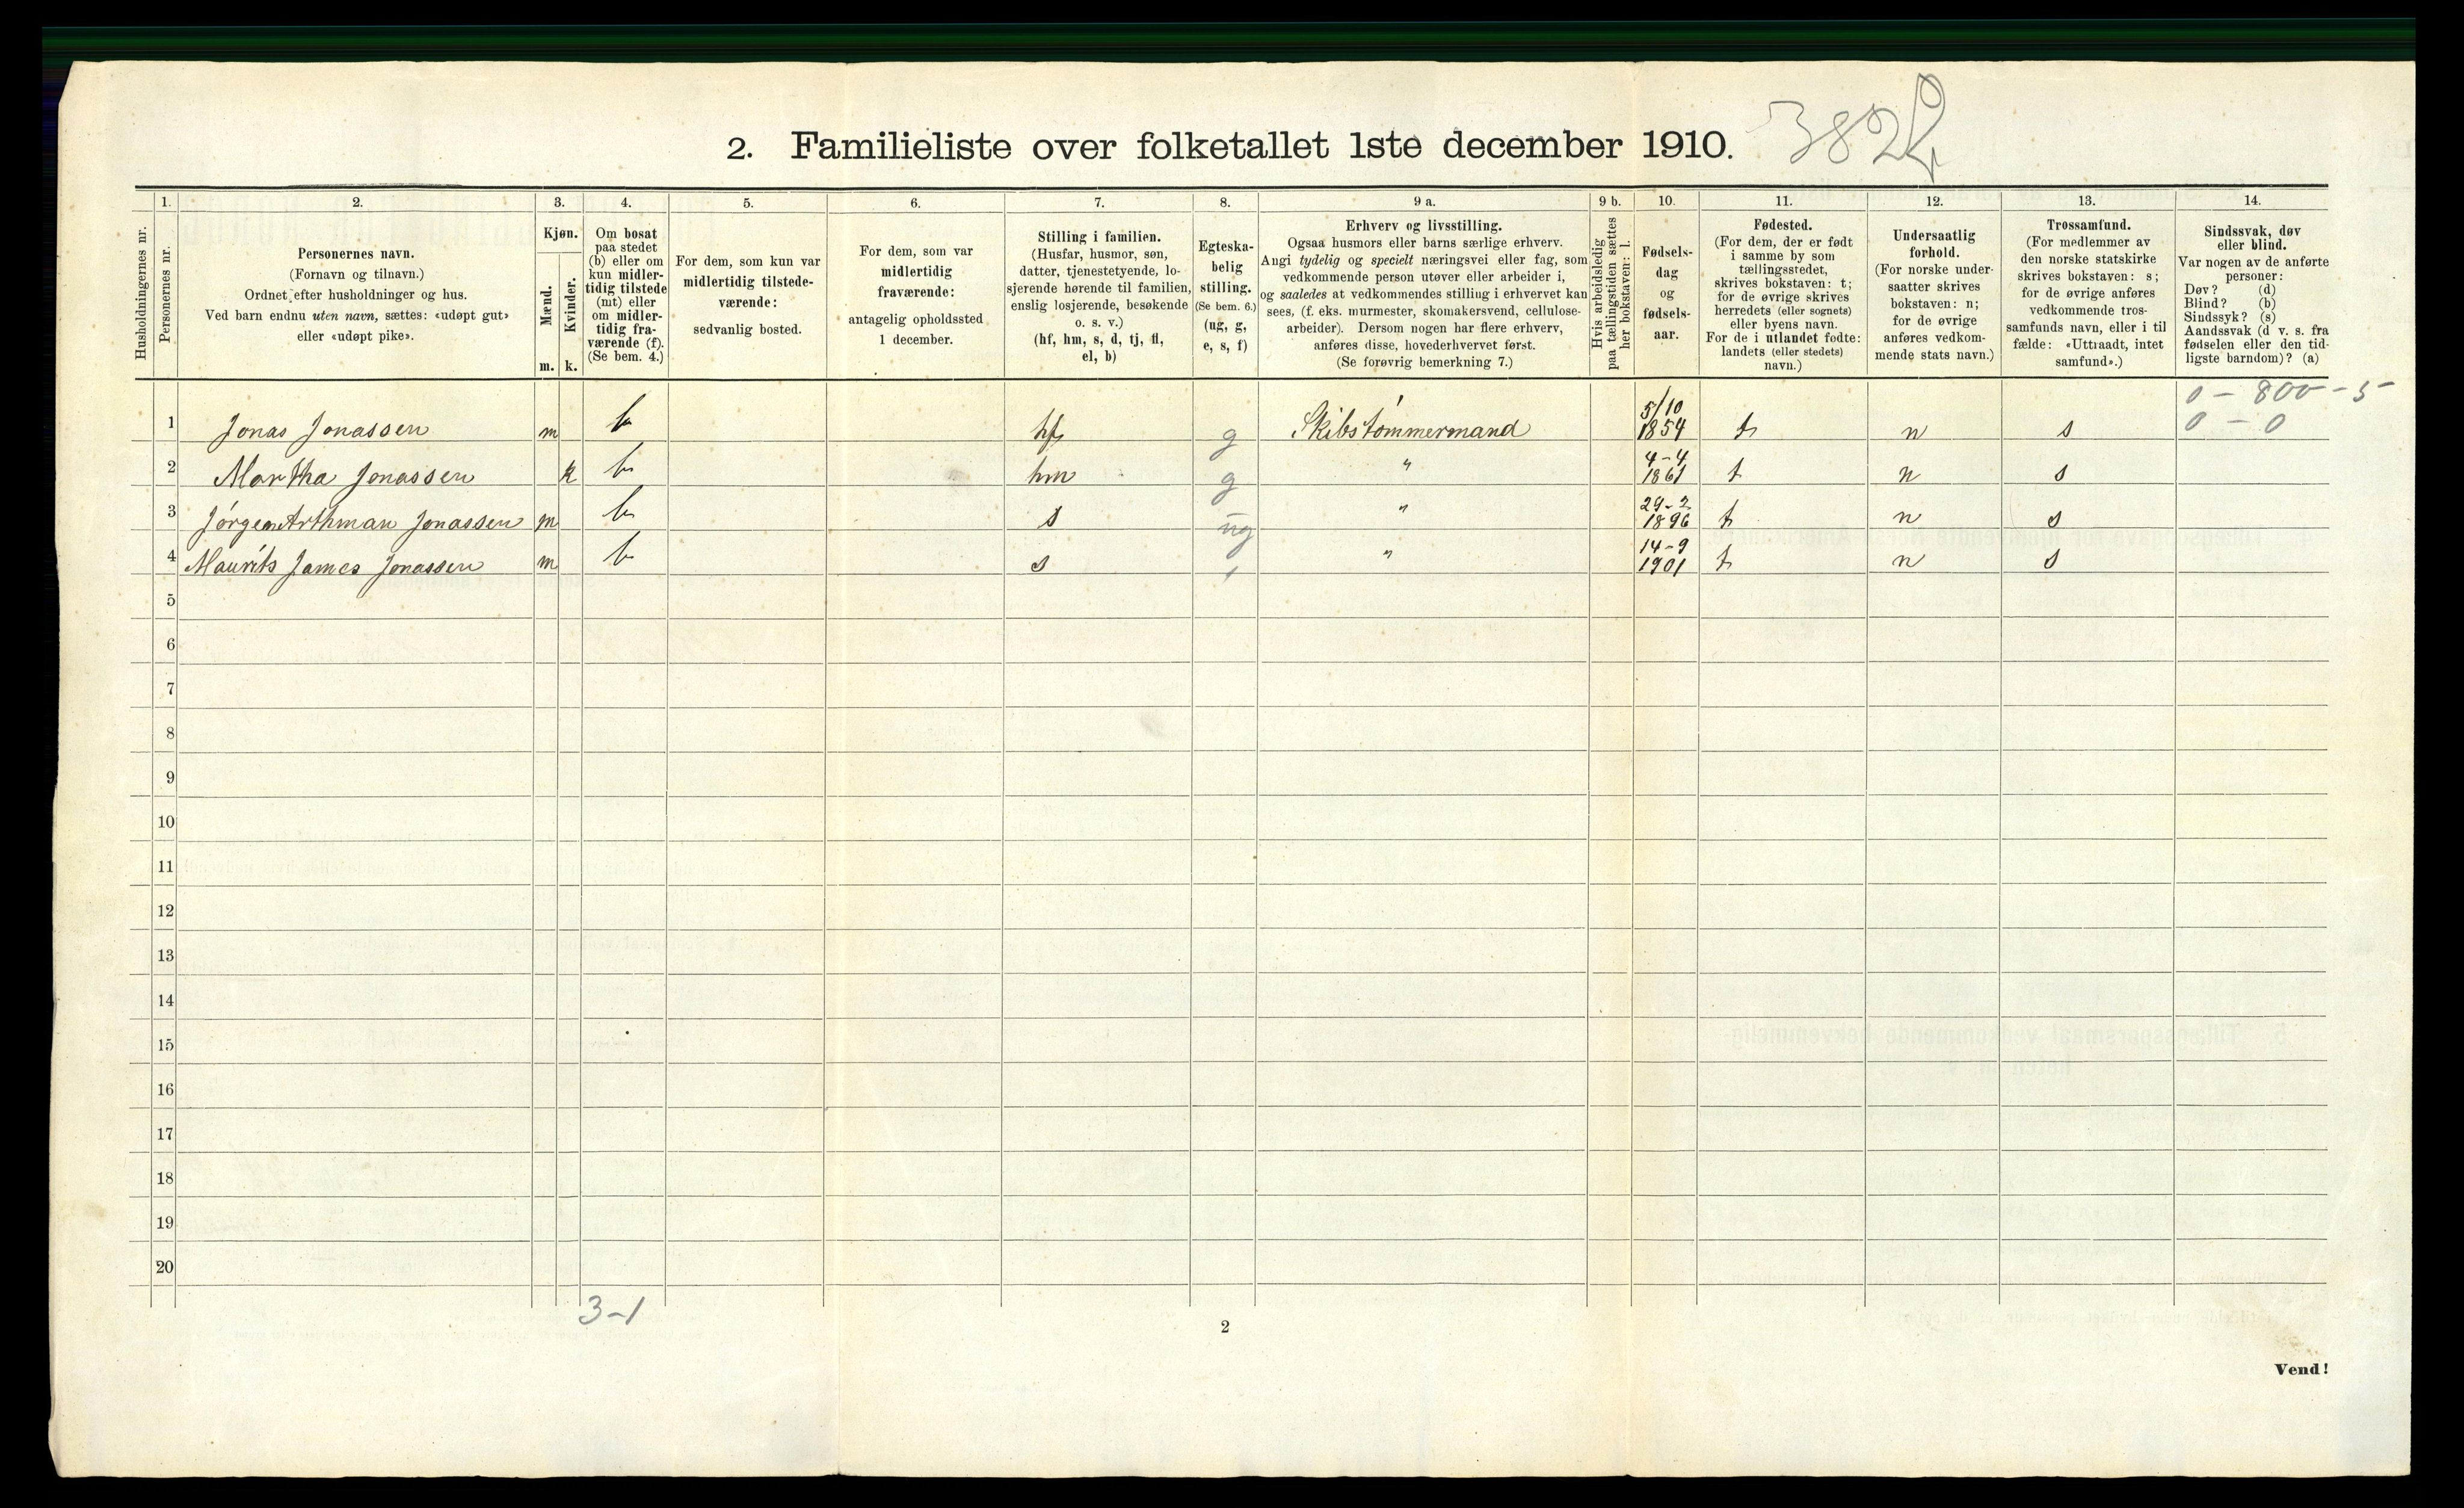 2. Familieliste over folketallet 1ste december 1910. 382
1. 2. 3. 4. 5. 6. 7. 8. 9 a. 9 b. 10. 11. 12. 13. 14.
Husholdningernes nr.
Personernes nr.
Personernes navn.
(Fornavn og tilnavn.)
Ordnet efter husholdninger og hus.
Ved barn endnu uten navn, sættes: «udøpt gut»
eller «udøpt pike».
Kjøn.
Mænd.
Kvinder.
m. k.
Om bosat
paa stedet
(b) eller om
kun midler-
tidig tilstede
(mt) eller
om midler-
tidig fra-
værende (f).
(Se bem. 4.)
For dem, som kun var
midlertidig tilstede-
værende:
sedvanlig bosted.
For dem, som var
midlertidig
fraværende:
antagelig opholdssted
1 december.
Stilling i familien.
(Husfar, husmor, søn,
datter, tjenestetyende, lo-
sjerende hørende til familien,
enslig losjerende, besøkende
o. s. v.)
(hf, hm, s, d, tj, fl,
el, b)
Egteska-
belig
stilling.
(Se bem. 6.)
(ug, g,
e, s, f)
Erhverv og livsstilling.
Ogsaa husmors eller barns særlige erhverv.
Angi tydelig og specielt næringsvei eller fag, som
vedkommende person utøver eller arbeider i,
og saaledes at vedkommendes stilling i erhvervet kan
sees, (f. eks. murmester, skomakersvend, cellulose-
arbeider). Dersom nogen har flere erhverv,
anføres disse, hovederhvervet først.
(Se forøvrig bemerkning 7.)
Hvis arbeidsledig
paa tællingstiden sættes
her bokstaven: l.
Fødsels-
dag
og
fødsels-
aar.
Fødested.
(For dem, der er født
i samme by som
tællingsstedet,
skrives bokstaven: t;
for de øvrige skrives
herredets (eller sognets)
eller byens navn.
For de i utlandet fødte:
landets (eller stedets)
navn.)
Undersaatlig
forhold.
(For norske under-
saatter skrives
bokstaven: n;
for de øvrige
anføres vedkom-
mende stats navn.)
Trossamfund.
(For medlemmer av
den norske statskirke
skrives bokstaven: s;
for de øvrige anføres
vedkommende tros-
samfunds navn, eller i til
fælde: «Uttraadt, intet
samfund».)
Sindssvak, døv
eller blind.
Var nogen av de anførte
personer:
Døv? (d)
Blind? (b)
Sindssyk? (s)
Aandssvak (d v. s. fra
fødselen eller den tid-
ligste barndom)? (a)
0 - 800 - 5
0 - 0
1 Jonas Jonassen m b hf g Skibstømmermand 5/10 1854 t n s
2 Martha Jonassen k b hm g " 4-4 1861 t n s
3 Jørgen Arthman Jonassen m b s ug " 29-2 1896 t n s
4 Maurits James Jonassen m b s " 14-9 1901 t n s
5
6
7
8
9
10
11
12
13
14
15
16
17
18
19
20
3-1
2
Vend!